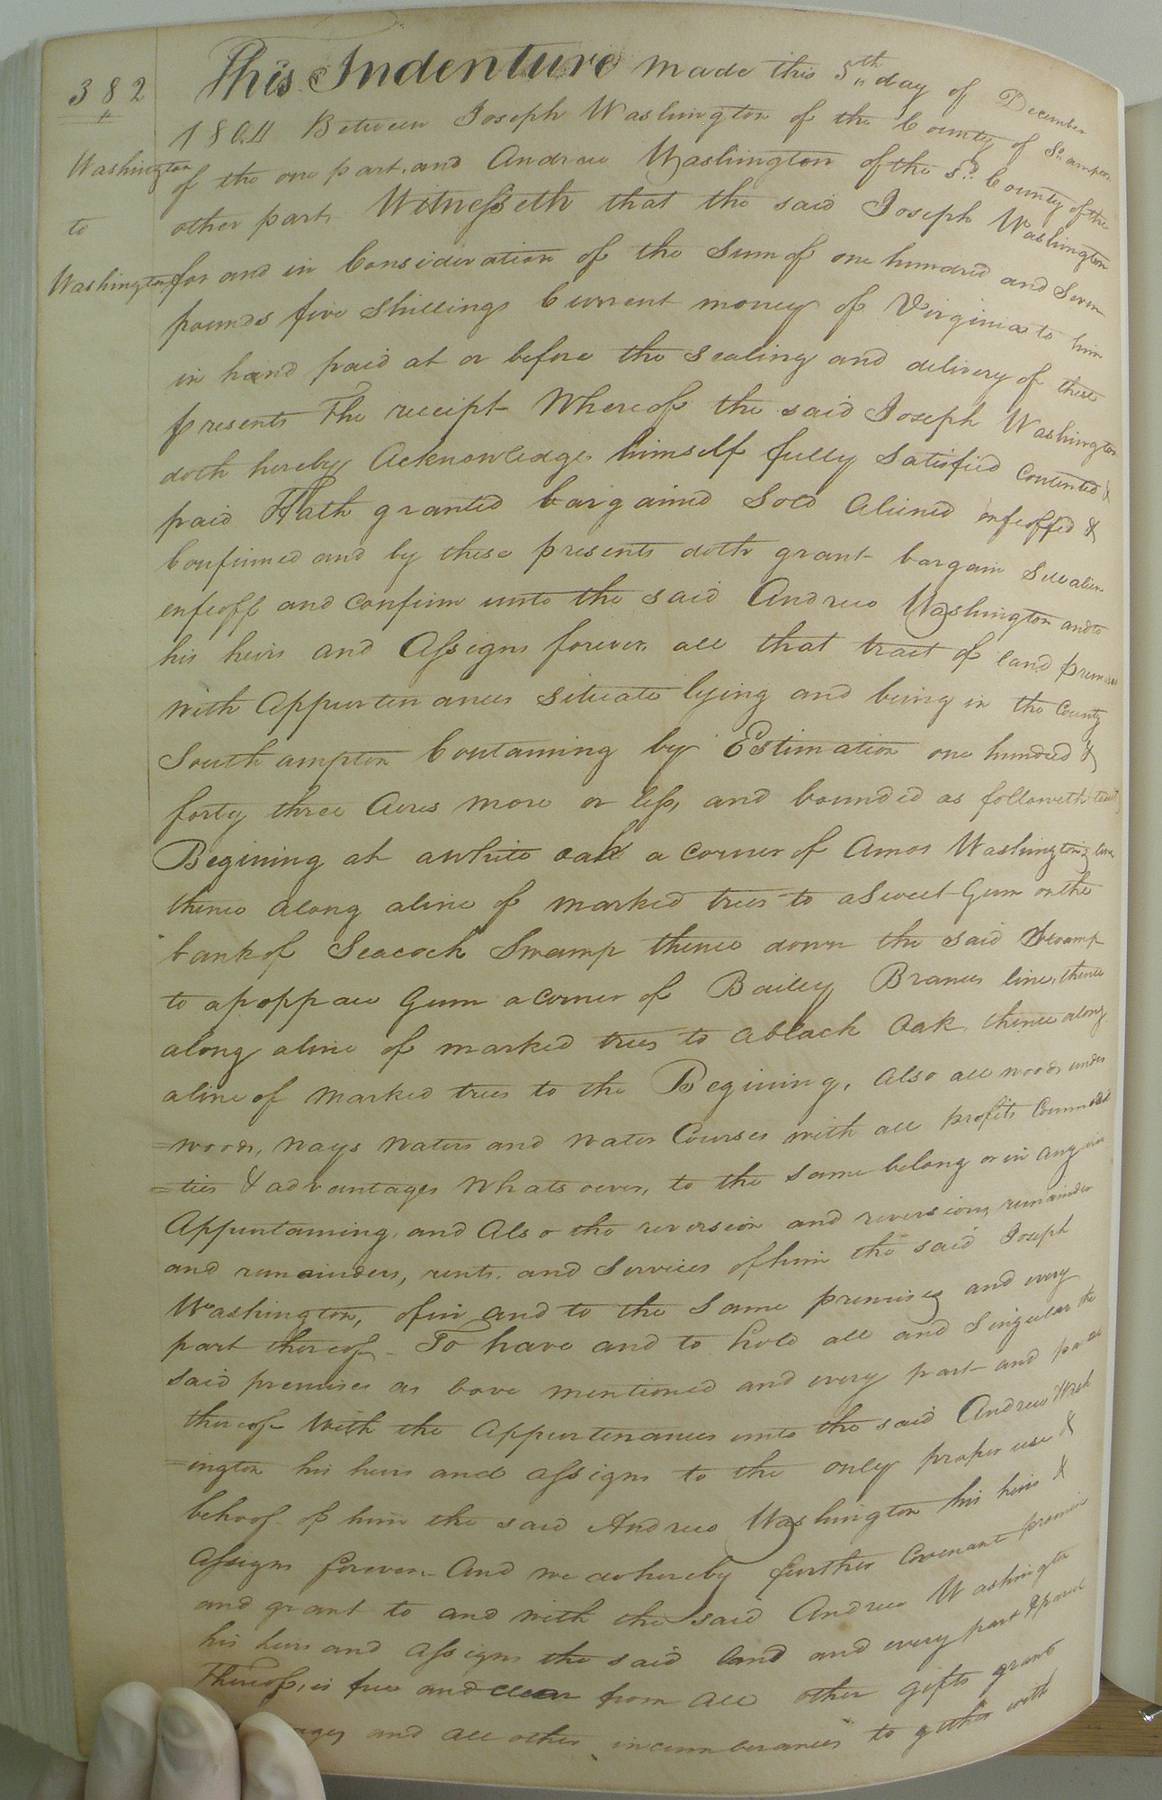 382
Washington
to
Washington
This Indenture made this 5th day of December
1804 Between Joseph Washington of the County of So. ampton
of the one part, and Andrew Washington of the sd. County of the
other part Witnesseth that the said Joseph Washington
for and in Consideration of the Sum of one hundred and Seven
pounds five Shillings Current money of Virginia to him
in hand paid at or before the sealing and delivery of these
presents The receipt Whereof the said Joseph Washington
doth hereby Acknowledge himself fully Satisfied Contented &
paid Hath granted bargained Sold Aliened enfeoffed &
Confirmed and by these presents doth grant bargain Sell alien
enfeoff and confirm unto the said Andrew Washington and to
his heirs and Assigns forever, all that tract of land premises
with Appurtenances situate lying and being in the County
Southampton Containing by Estimation one hundred &
forty three Acres more or less, and bounded as followeth (to wit)
Begining at a white oak a corner of Amos Washingtons line
thence along a line of marked trees to a Sweet Gum on the
bank of Seacock Swamp thence down the said Swamp
to a poppaw Gum a corner of Bailey Branes line, thence
along a line of marked trees to a black Oak, thence along
a line of marked trees to the Begining, Also all woods under
=woods, ways waters and water Courses with all profits Commodi
=ties & advantages Whatsoever, to the same belong or in any wise
Appurtaining, and Also the reversion and reversions, remainder
and remainders, rents, and Services of him the said Joseph
Washington, of in and to the Same premises and every
part thereof. To have and to hold all and Singular the
said premises as bove mentioned and every part and parcel
thereof With the Appurtenances unto the said Andrew Wash
=ington his heirs and assigns to the only proper use &
behoof of him the said Andrew Washington his heirs &
Assigns forever. And we do hereby further Covenant promise
and grant to and with the said Andrew Washington
his heirs and Assigns the said land and every part & parcel
Thereof, is free and clear from all other gifts grants
and all other incumberances to gether with